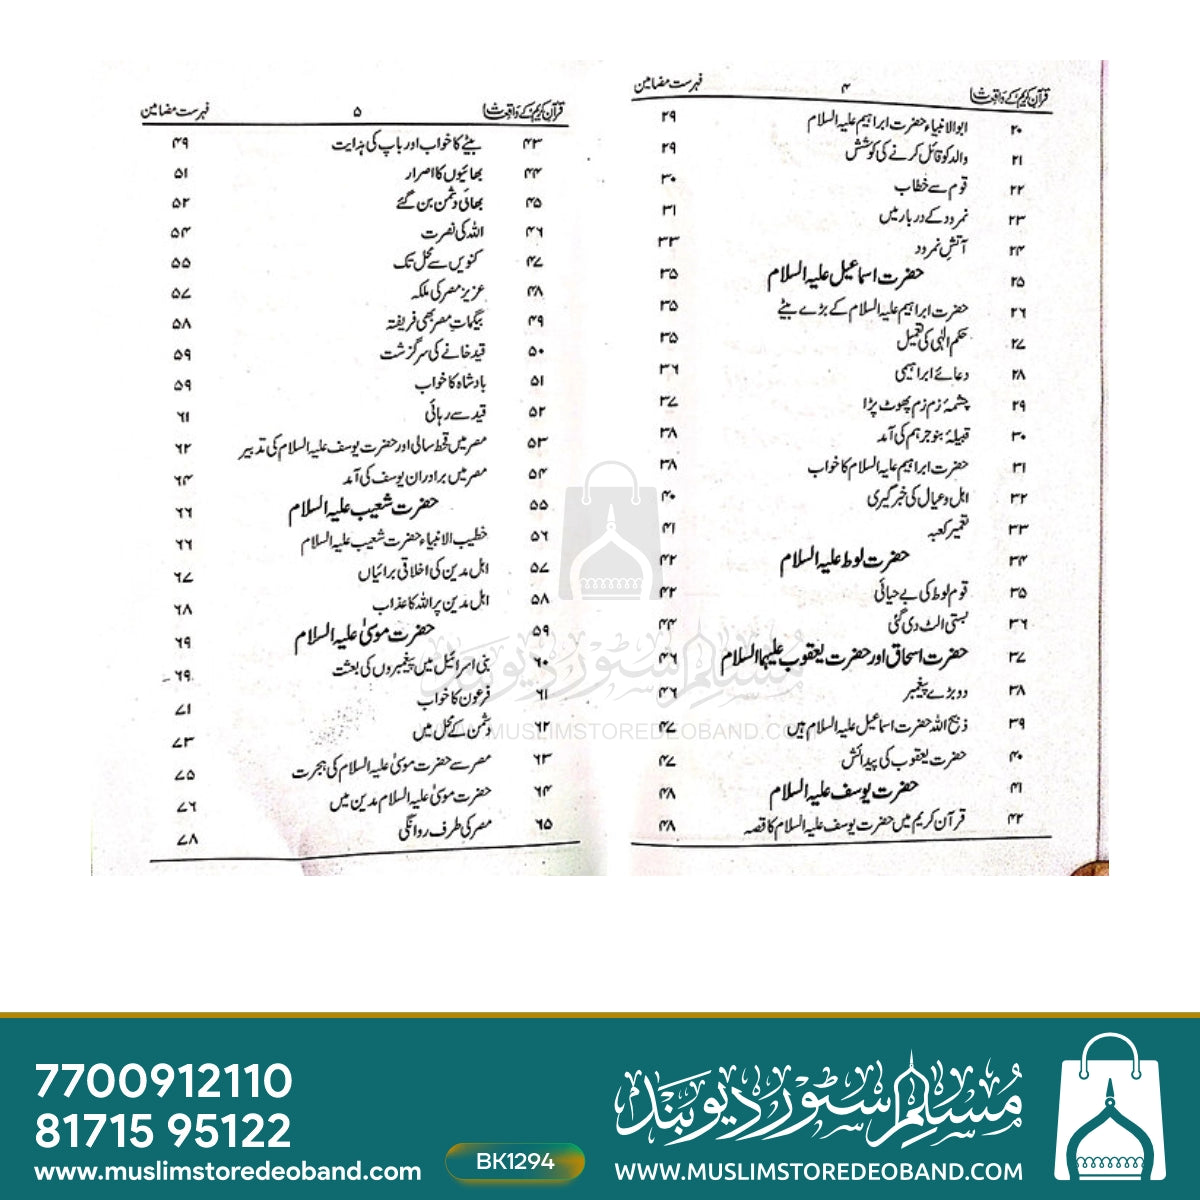 قرآن کریم کے واقعات ۴ فہرست مضامین
۲۰ ابوالانبیاء حضرت ابراہیم علیہ السلام ۲۹
۲۱ والد کو قائل کرنے کی کوشش ۲۹
۲۲ قوم سے خطاب ۳۰
۲۳ نمرود کے دربار میں ۳۱
۲۴ آتشِ نمرود ۳۳
۲۵ حضرت اسماعیل علیہ السلام ۳۵
۲۶ حضرت ابراہیم علیہ السلام کے بڑے بیٹے ۳۵
۲۷ حکم الٰہی کی تعمیل ۳۵
۲۸ دعائے ابراہیمی ۳۶
۲۹ چشمۂ زم زم پھوٹ پڑا ۳۷
۳۰ قبیلۂ بنو جرہم کی آمد ۳۸
۳۱ حضرت ابراہیم علیہ السلام کا خواب ۳۸
۳۲ اہل و عیال کی خبر گیری ۴۰
۳۳ تعمیر کعبہ ۴۱
۳۴ حضرت لوط علیہ السلام ۴۲
۳۵ قوم لوط کی بے حیائی ۴۲
۳۶ بستی الٹ دی گئی ۴۴
۳۷ حضرت اسحاق اور حضرت یعقوب علیہما السلام ۴۶
۳۸ دو بڑے پیغمبر ۴۶
۳۹ ذبیح اللہ حضرت اسماعیل علیہ السلام ہیں ۴۷
۴۰ حضرت یعقوب کی پیدائش ۴۷
۴۱ حضرت یوسف علیہ السلام ۴۸
۴۲ قرآن کریم میں حضرت یوسف علیہ السلام کا قصہ ۴۸
قرآن کریم کے واقعات ۵ فہرست مضامین
۴۳ بیٹے کا خواب اور باپ کی ہدایت ۴۹
۴۴ بھائیوں کا اصرار ۵۱
۴۵ بھائی دشمن بن گئے ۵۲
۴۶ اللہ کی نصرت ۵۴
۴۷ کنویں سے محل تک ۵۵
۴۸ عزیز مصر کی ملکہ ۵۷
۴۹ بیگماتِ مصر بھی فریفتہ ۵۸
۵۰ قید خانے کی سرگزشت ۵۹
۵۱ بادشاہ کا خواب ۵۹
۵۲ قید سے رہائی ۶۱
۵۳ مصر میں قحط سالی اور حضرت یوسف علیہ السلام کی تدبیر ۶۲
۵۴ مصر میں برادران یوسف کی آمد ۶۴
۵۵ حضرت شعیب علیہ السلام ۶۶
۵۶ خطیب الانبیاء حضرت شعیب علیہ السلام ۶۶
۵۷ اہل مدین کی اخلاقی برائیاں ۶۷
۵۸ اہل مدین پر اللہ کا عذاب ۶۸
۵۹ حضرت موسیٰ علیہ السلام ۶۹
۶۰ بنی اسرائیل میں پیغمبروں کی بعثت ۶۹
۶۱ فرعون کا خواب ۷۱
۶۲ دشمن کے محل میں ۷۳
۶۳ مصر سے حضرت موسیٰ علیہ السلام کی ہجرت ۷۵
۶۴ حضرت موسیٰ علیہ السلام مدین میں ۷۶
۶۵ مصر کی طرف روانگی ۷۸
مسلم سٹور دیوبند
WWW.MUSLIMSTOREDEOBAND.COM
7700912110
81715 95122
www.muslimstoredeoband.com
BK1294
مسلم سٹور دیوبند
WWW.MUSLIMSTOREDEOBAND.COM